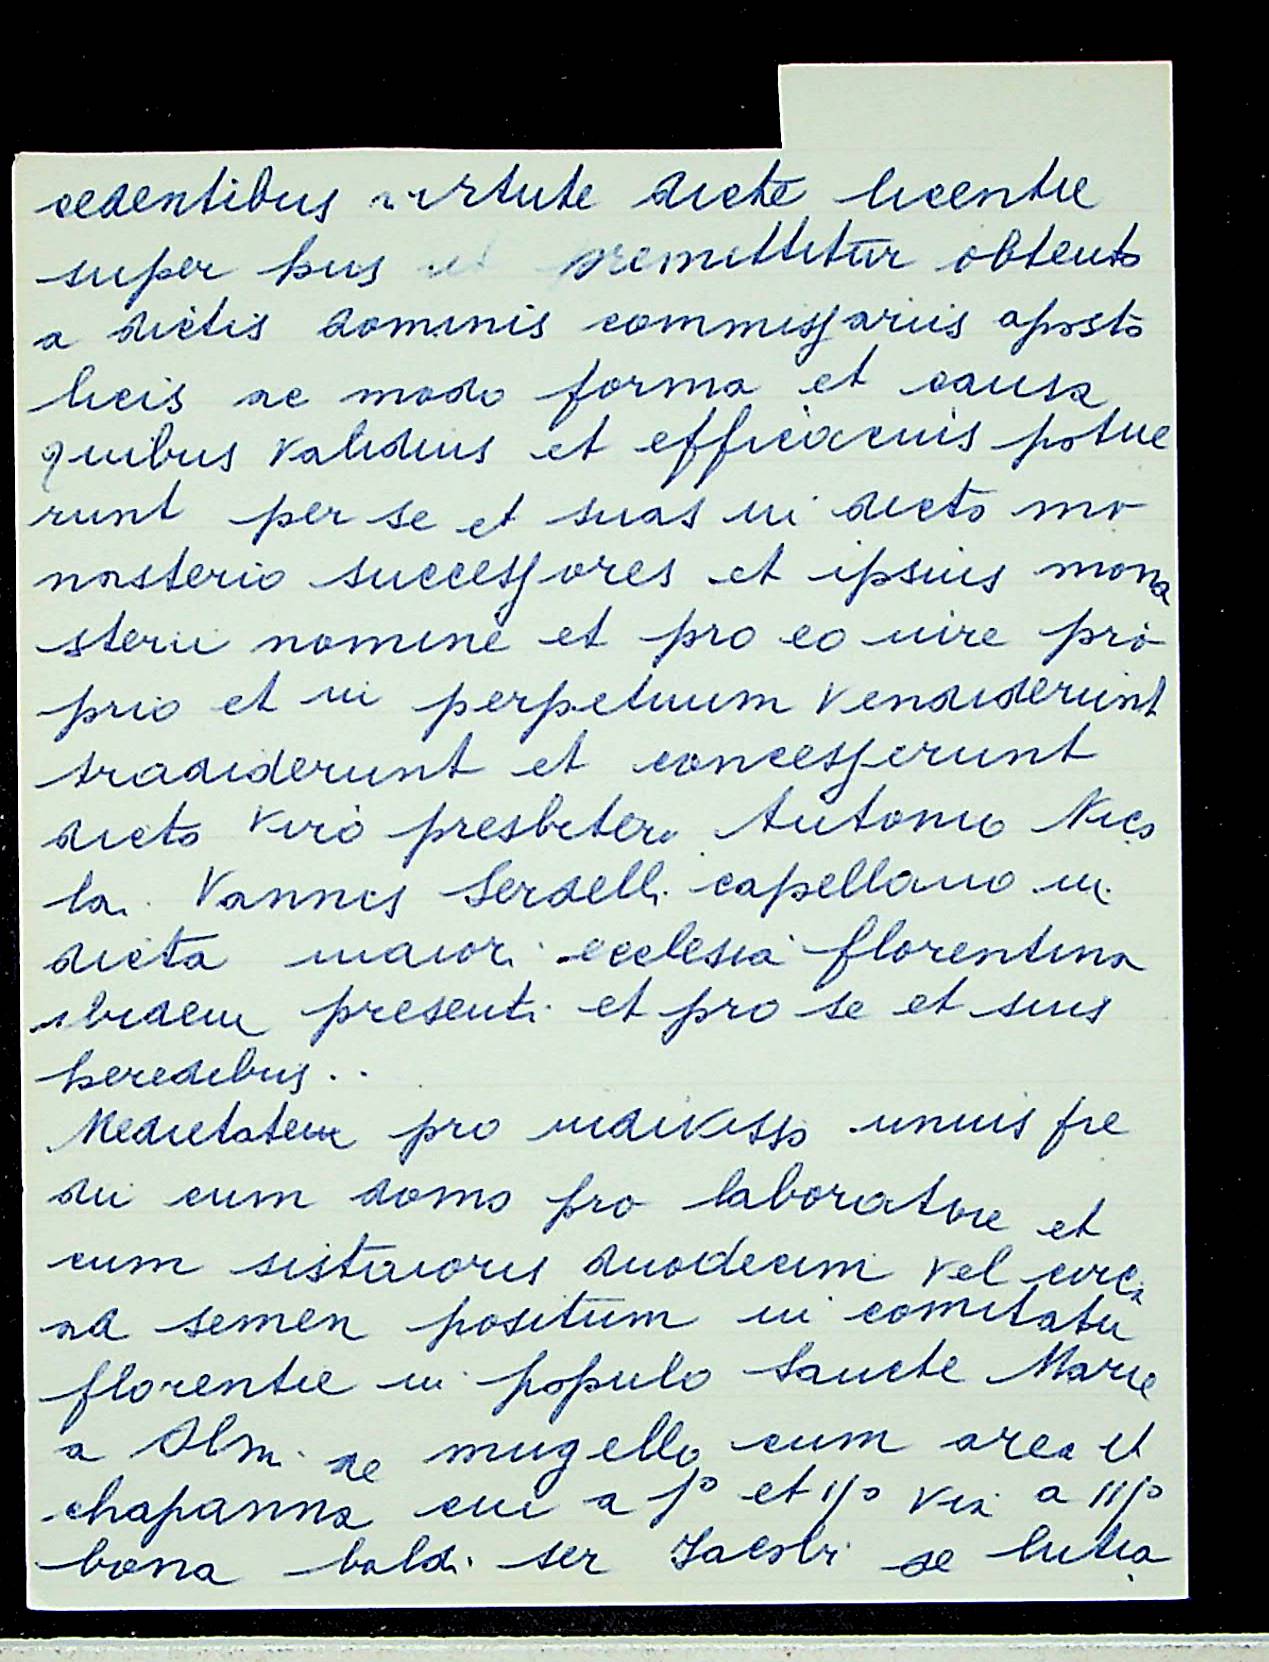 cedentibus virtute dicte licentie
super hiis ut premittitur obtento
a dictis dominis commissariis aposto
licis ac modo forma et causa
quibus validius et efficacius potue
runt per se et suos in dicto mo
nasterio successores et ipsius mona
sterii nomine et pro eo iure pro
prio et in perpetuum vendiderunt
tradiderunt et concesserunt
dicto viro presbitero Antonio Nico
lai Vannis Serdelli capellano in
dicta maiori ecclesia florentina
ibidem presenti et pro se et suis
heredibus..
Medietatem pro indivisso unius pre
dii cum domo pro laboratore et
cum sistaioris duodecim vel circa
ad semen positum in comitatu
florentie in populo Sancte Marie
a Olmi de mugello cum area et
chapanna cui a j° et ij° via a iij°
bona baldi ser Jacobi de lutia